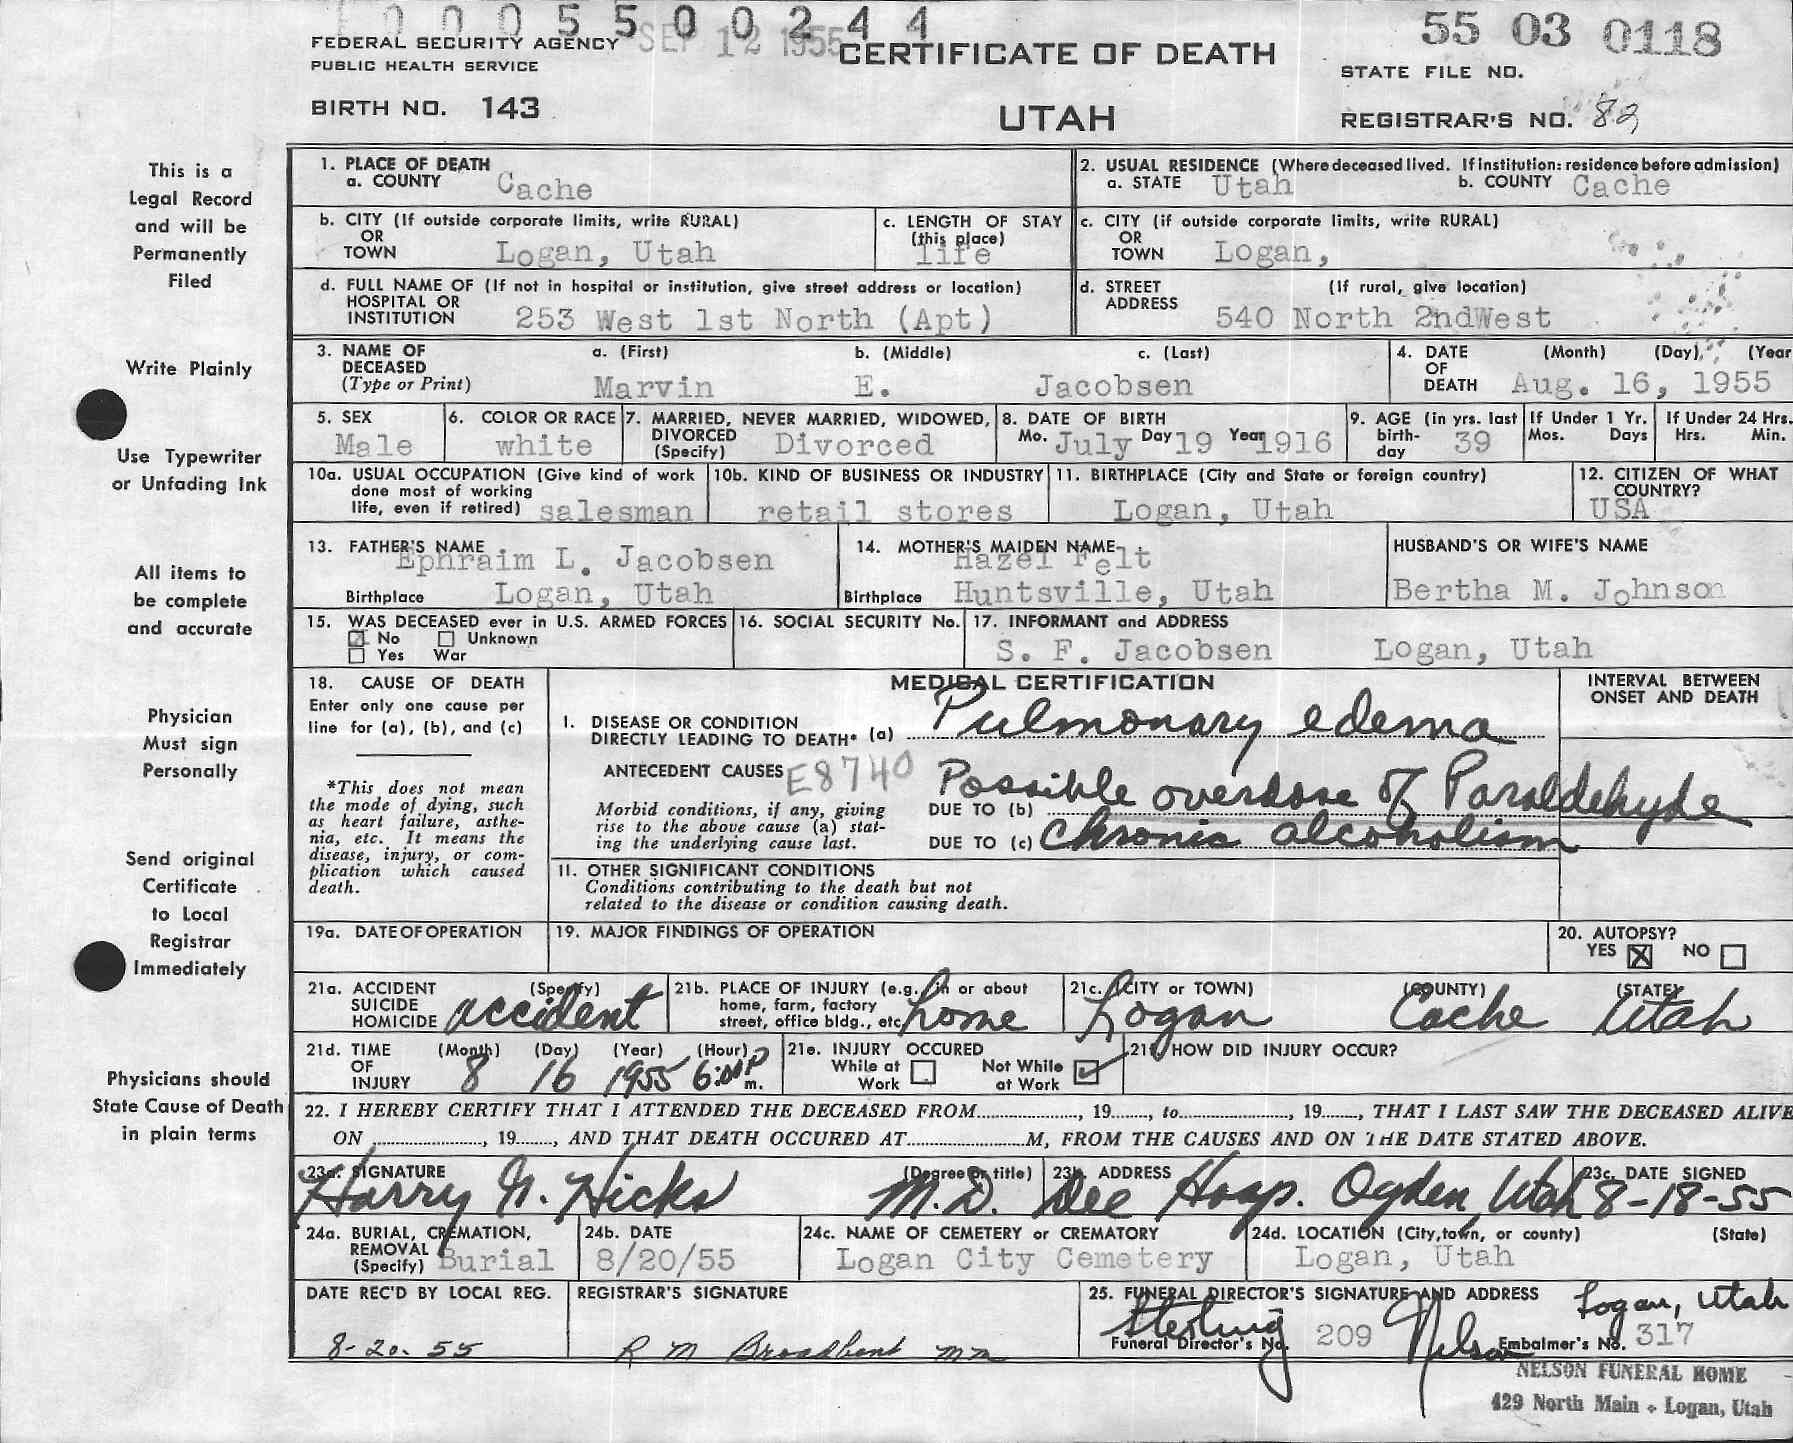 0 0 0 5 5 0 0 2 4 4
SEP 12 1955
55 03 0118
FEDERAL SECURITY AGENCY
PUBLIC HEALTH SERVICE
CERTIFICATE OF DEATH
STATE FILE NO.
BIRTH NO. 143
UTAH
REGISTRAR'S NO. 82
This is a
Legal Record
and will be
Permanently
Filed
Write Plainly
Use Typewriter
or Unfading Ink
All items to
be complete
and accurate
Physician
Must sign
Personally
Send original
Certificate
to Local
Registrar
Immediately
Physicians should
State Cause of Death
in plain terms
1. PLACE OF DEATH
a. COUNTY Cache
2. USUAL RESIDENCE (Where deceased lived. If institution: residence before admission)
a. STATE Utah b. COUNTY Cache
b. CITY (If outside corporate limits, write RURAL)
OR
TOWN Logan, Utah
c. LENGTH OF STAY
(this place)
life
c. CITY (if outside corporate limits, write RURAL)
OR
TOWN Logan,
d. FULL NAME OF (If not in hospital or institution, give street address or location)
HOSPITAL OR
INSTITUTION 253 West 1st North (Apt)
d. STREET (If rural, give location)
ADDRESS 540 North 2ndWest
3. NAME OF a. (First) b. (Middle) c. (Last)
DECEASED
(Type or Print) Marvin E. Jacobsen
4. DATE (Month) (Day) (Year
OF
DEATH Aug. 16, 1955
5. SEX
Male
6. COLOR OR RACE
white
7. MARRIED, NEVER MARRIED, WIDOWED,
DIVORCED
(Specify) Divorced
8. DATE OF BIRTH
Mo. July Day 19 Year 1916
9. AGE (in yrs. last
birth-
day 39
If Under 1 Yr.
Mos. Days
If Under 24 Hrs.
Hrs. Min.
10a. USUAL OCCUPATION (Give kind of work
done most of working
life, even if retired) salesman
10b. KIND OF BUSINESS OR INDUSTRY
retail stores
11. BIRTHPLACE (City and State or foreign country)
Logan, Utah
12. CITIZEN OF WHAT
COUNTRY?
USA
13. FATHER'S NAME
Ephraim L. Jacobsen
Birthplace Logan, Utah
14. MOTHER'S MAIDEN NAME
Hazel Felt
Birthplace Huntsville, Utah
HUSBAND'S OR WIFE'S NAME
Bertha M. Johnson
15. WAS DECEASED ever in U.S. ARMED FORCES
No Unknown
Yes War
16. SOCIAL SECURITY No.
17. INFORMANT and ADDRESS
S. F. Jacobsen Logan, Utah
18. CAUSE OF DEATH
Enter only one cause per
line for (a), (b), and (c)
*This does not mean
the mode of dying, such
as heart failure, asthe-
nia, etc. It means the
disease, injury, or com-
plication which caused
death.
MEDICAL CERTIFICATION
INTERVAL BETWEEN
ONSET AND DEATH
I. DISEASE OR CONDITION
DIRECTLY LEADING TO DEATH* (a) Pulmonary edema
ANTECEDENT CAUSES E8740
Morbid conditions, if any, giving
rise to the above cause (a) stat-
ing the underlying cause last.
DUE TO (b) Possible overdose of Paraldehyde
DUE TO (c) Chronic alcoholism
11. OTHER SIGNIFICANT CONDITIONS
Conditions contributing to the death but not
related to the disease or condition causing death.
19a. DATE OF OPERATION
19. MAJOR FINDINGS OF OPERATION
20. AUTOPSY?
YES X NO
21a. ACCIDENT (Specify)
SUICIDE
HOMICIDE accident
21b. PLACE OF INJURY (e.g. in or about
home, farm, factory
street, office bldg., etc. home
21c. (CITY or TOWN) (COUNTY) (STATE)
Logan Cache Utah
21d. TIME (Month) (Day) (Year) (Hour)
OF
INJURY 8 16 1955 6:00 P m.
21e. INJURY OCCURED
While at Work Not While at Work
21f. HOW DID INJURY OCCUR?
22. I HEREBY CERTIFY THAT I ATTENDED THE DECEASED FROM............, 19......, to............, 19......, THAT I LAST SAW THE DECEASED ALIVE
ON ............, 19......, AND THAT DEATH OCCURED AT............M, FROM THE CAUSES AND ON THE DATE STATED ABOVE.
23a. SIGNATURE (Degree or title)
Harry N. Hicks M.D.
23b. ADDRESS
Dee Hosp. Ogden, Utah
23c. DATE SIGNED
8-18-55
24a. BURIAL, CREMATION,
REMOVAL
(Specify) Burial
24b. DATE
8/20/55
24c. NAME OF CEMETERY or CREMATORY
Logan City Cemetery
24d. LOCATION (City, town, or county) (State)
Logan, Utah
DATE REC'D BY LOCAL REG.
8-20-55
REGISTRAR'S SIGNATURE
R M Broadbent
25. FUNERAL DIRECTOR'S SIGNATURE AND ADDRESS
Sterling Nelson Logan, Utah
Funeral Director's No. 209 Embalmer's No. 317
NELSON FUNERAL HOME
429 North Main • Logan, Utah